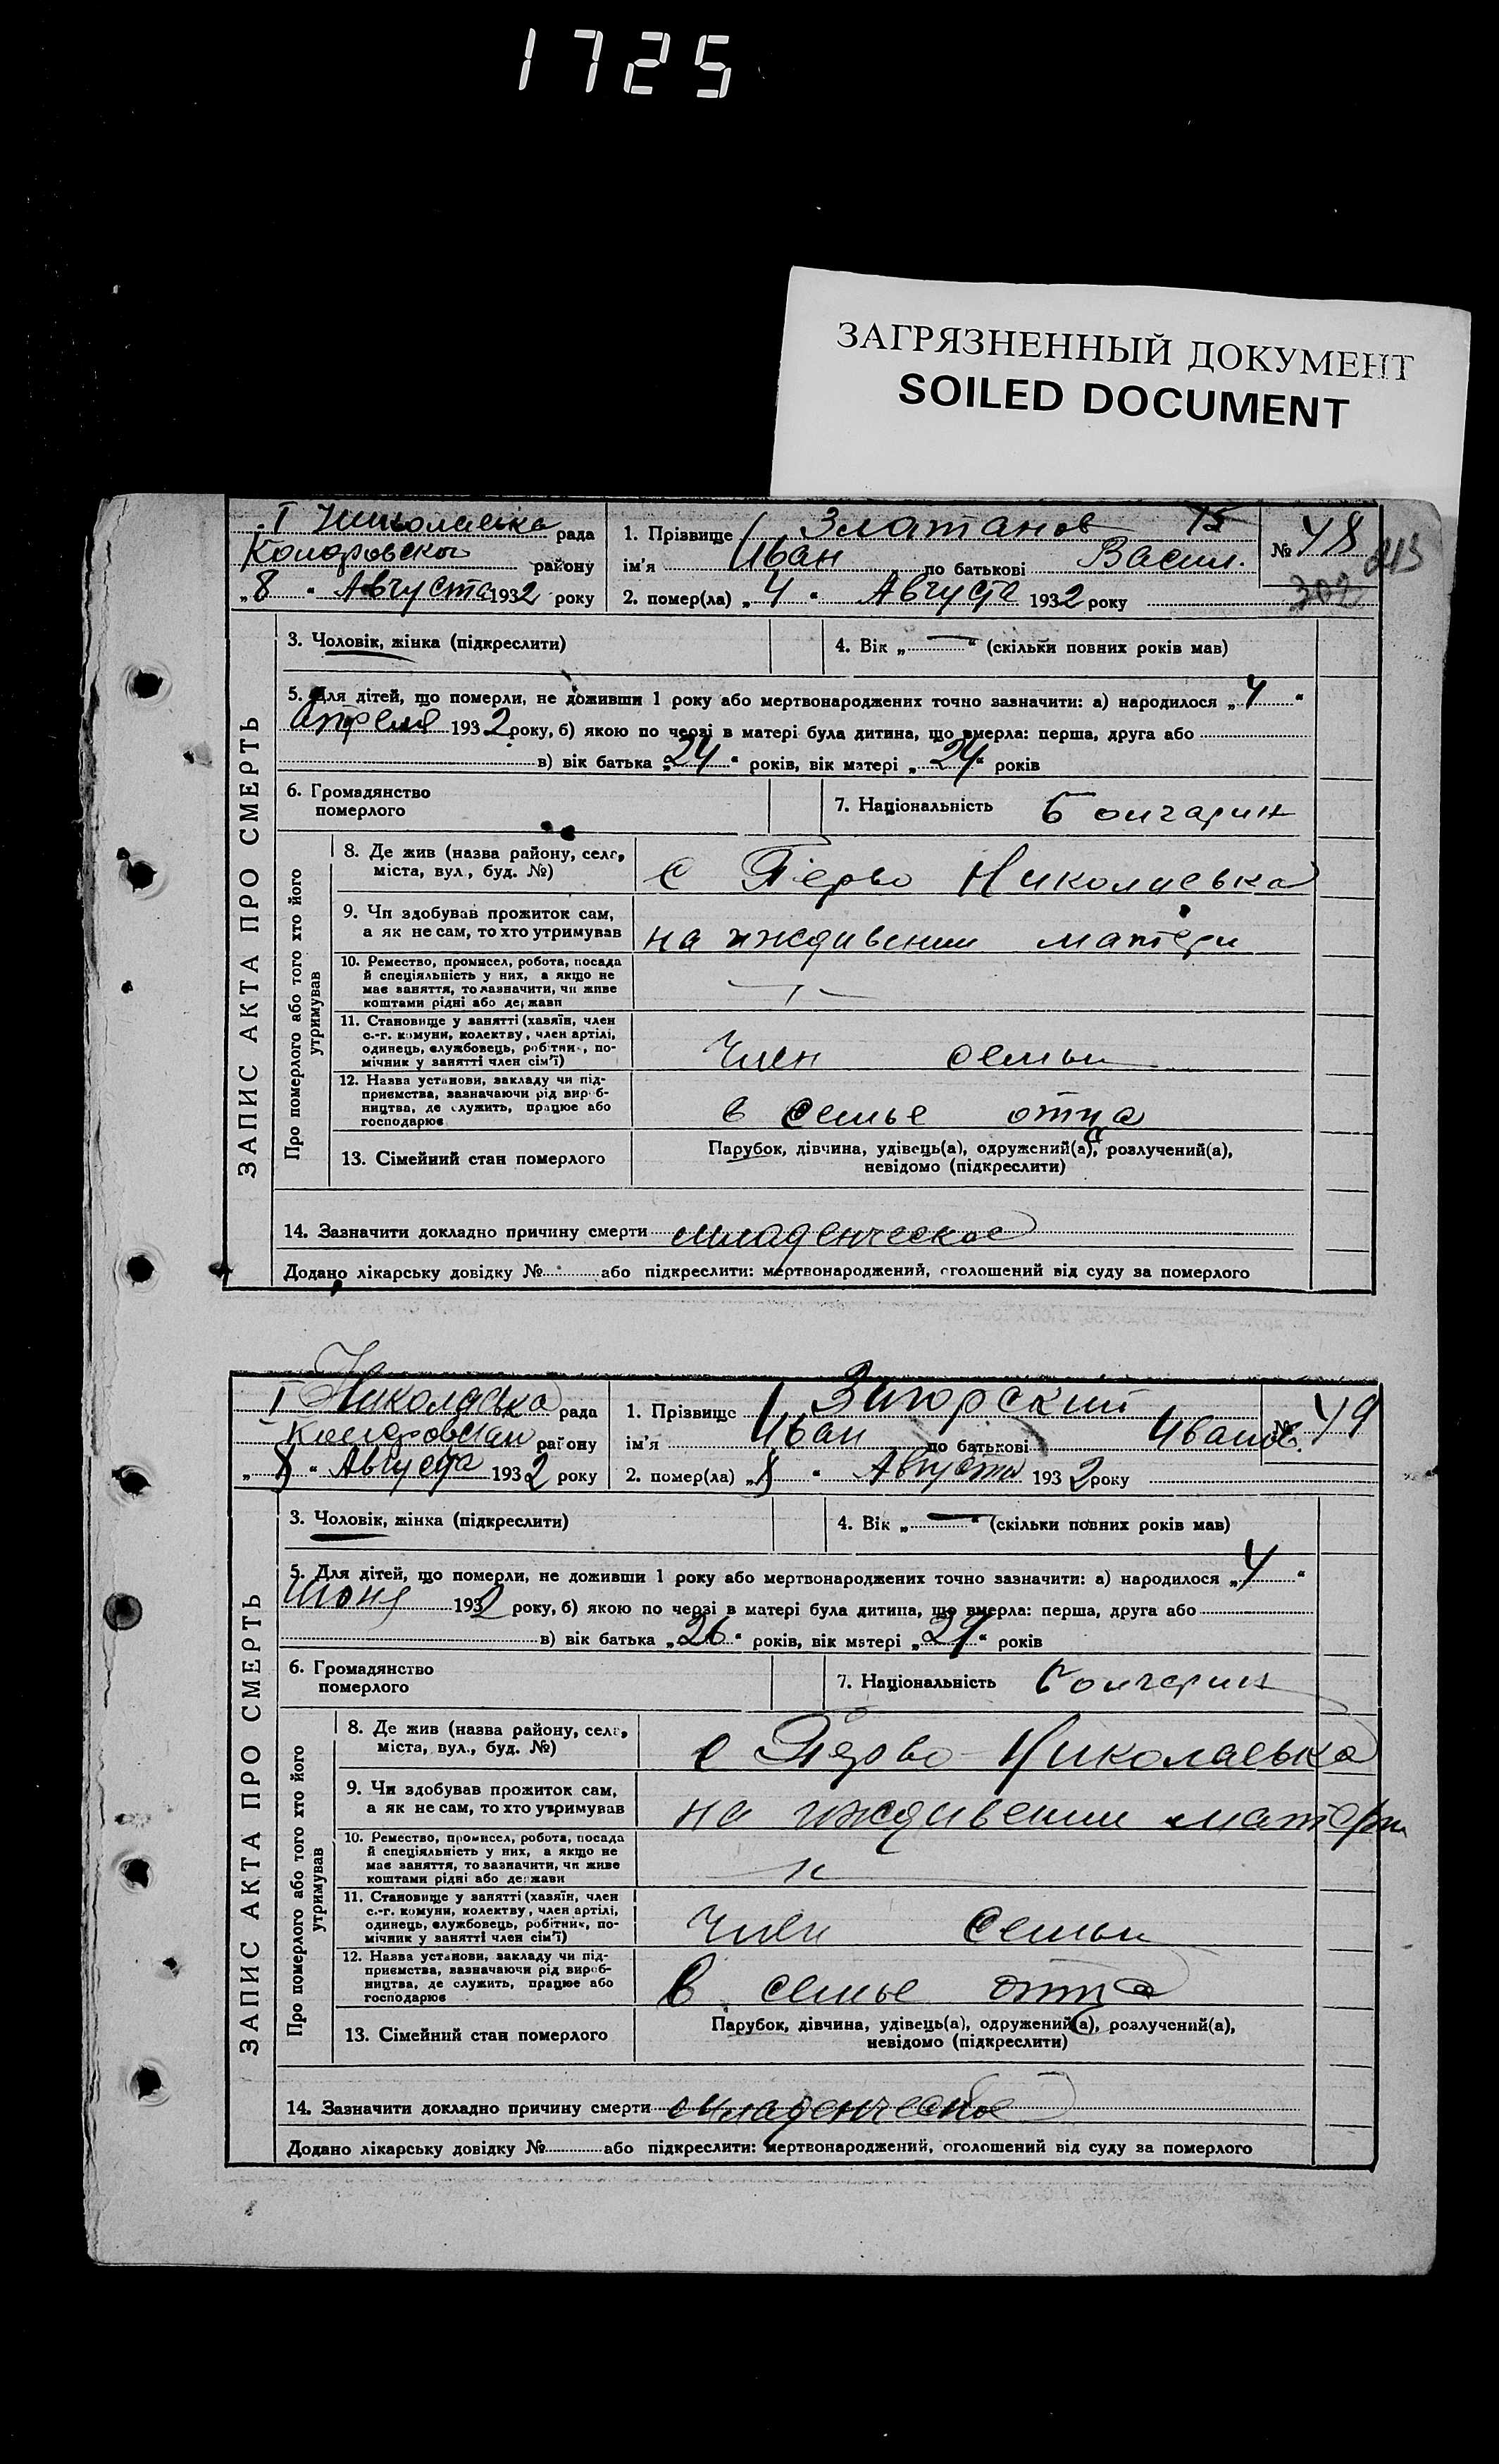 1725
ЗАГРЯЗНЕННЫЙ ДОКУМЕНТ
SOILED DOCUMENT
ЗАПИС АКТА ПРО СМЕРТЬ
I Николаевка рада
району
„8" Августа 1932 року
1. Прізвище Златанов 15
ім'я Иван по батькові Васил.
2. помер(ла) „4" Августа 1932 року
№ 48
213
302
3. Чоловік, жінка (підкреслити)
4. Вік „—" (скільки повних років мав)
5. Для дітей, що померли, не доживши 1 року або мертвонароджених точно зазначити: а) народилося „4"
Апреля 1932 року, б) якою по черзі в матері була дитина, що вмерла: перша, друга або
в) вік батька „24" років, вік матері „24" років
6. Громадянство
померлого
7. Національність Болгарин
Про померлого або того хто його
утримував
8. Де жив (назва району, село,
міста, вул., буд. №)
с Перво Николаевка
9. Чи здобував прожиток сам,
а як не сам, то хто утримував
на иждивении матери
10. Ремество, промисел, робота, посада
й спеціяльність у них, а якщо не
має заняття, то зазначити, чи живе
коштами рідні або держави
11. Становище у занятті (хазяїн, член
с.-г. комуни, колективу, член артілі,
одинець, службовець, робітник, по-
мічник у занятті член сім'ї)
Член семьи
12. Назва установи, закладу чи під-
приємства, зазначаючи рід вироб-
ництва, де служить, працює або
господарює
в семье отца
13. Сімейний стан померлого
Парубок, дівчина, удівець(а), одружений(а), розлучений(а),
невідомо (підкреслити)
14. Зазначити докладно причину смерти младенческое
Додано лікарську довідку № або підкреслити: мертвонароджений, оголошений від суду за померлого
ЗАПИС АКТА ПРО СМЕРТЬ
I Николаевка рада
району
„8" Августа 1932 року
1. Прізвище Загорский
ім'я Иван по батькові Иванов
2. помер(ла) „8" Августа 1932 року
№ 49
3. Чоловік, жінка (підкреслити)
4. Вік „—" (скільки повних років мав)
5. Для дітей, що померли, не доживши 1 року або мертвонароджених точно зазначити: а) народилося „4"
Июня 1932 року, б) якою по черзі в матері була дитина, що вмерла: перша, друга або
в) вік батька „26" років, вік матері „27" років
6. Громадянство
померлого
7. Національність Болгарин
Про померлого або того хто його
утримував
8. Де жив (назва району, село,
міста, вул., буд. №)
с Перво-Николаевка
9. Чи здобував прожиток сам,
а як не сам, то хто утримував
на иждивении матери
10. Ремество, промисел, робота, посада
й спеціяльність у них, а якщо не
має заняття, то зазначити, чи живе
коштами рідні або держави
11. Становище у занятті (хазяїн, член
с.-г. комуни, колективу, член артілі,
одинець, службовець, робітник, по-
мічник у занятті член сім'ї)
Член семьи
12. Назва установи, закладу чи під-
приємства, зазначаючи рід вироб-
ництва, де служить, працює або
господарює
в семье отца
13. Сімейний стан померлого
Парубок, дівчина, удівець(а), одружений(а), розлучений(а),
невідомо (підкреслити)
14. Зазначити докладно причину смерти младенческое
Додано лікарську довідку № або підкреслити: мертвонароджений, оголошений від суду за померлого